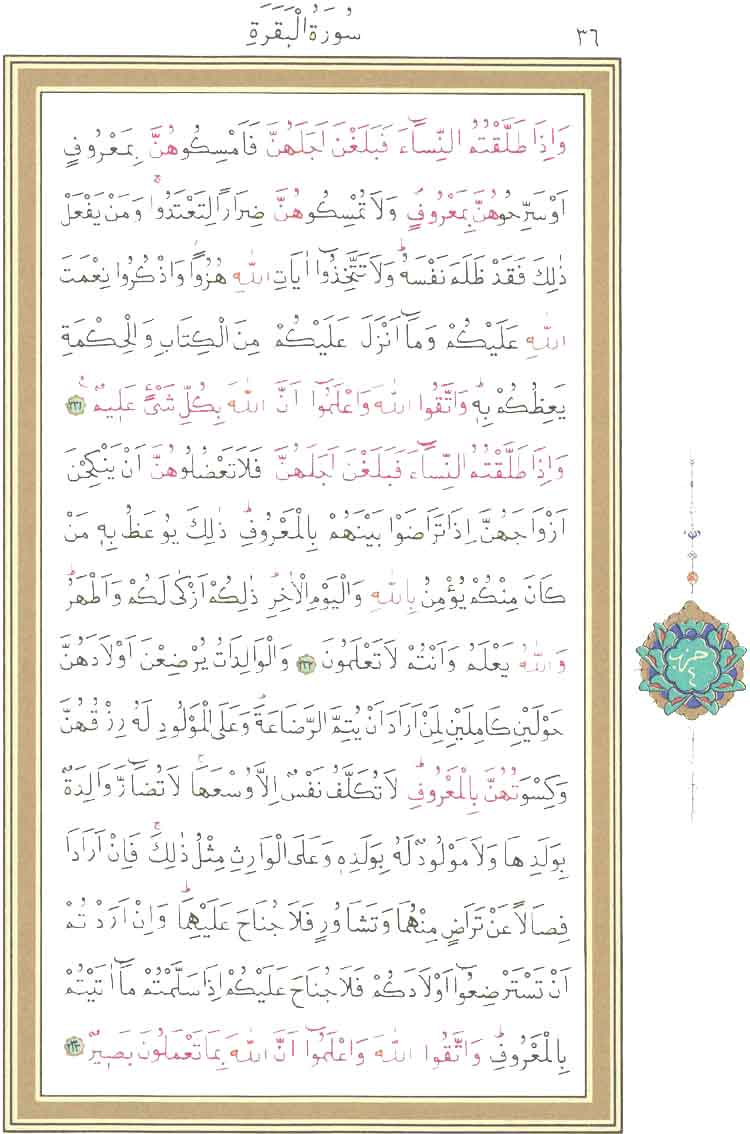 سُورَةُ الْبَقَرَةِ
٣٦
وَاِذَا طَلَّقْتُمُ النِّسَٓاءَ فَبَلَغْنَ اَجَلَهُنَّ فَاَمْسِكُوهُنَّ بِمَعْرُوفٍ
اَوْ سَرِّحُوهُنَّ بِمَعْرُوفٍۖ وَلَا تُمْسِكُوهُنَّ ضِرَارًا لِتَعْتَدُواۚ وَمَنْ يَفْعَلْ
ذٰلِكَ فَقَدْ ظَلَمَ نَفْسَهُۜ وَلَا تَتَّخِذُٓوا اٰيَاتِ اللّٰهِ هُزُوًاۘ وَاذْكُرُوا نِعْمَتَ
اللّٰهِ عَلَيْكُمْ وَمَٓا اَنْزَلَ عَلَيْكُمْ مِنَ الْكِتَابِ وَالْحِكْمَةِ
يَعِظُكُمْ بِهٖۜ وَاتَّقُوا اللّٰهَ وَاعْلَمُٓوا اَنَّ اللّٰهَ بِكُلِّ شَيْءٍ عَلٖيمٌ۟ ﴿٢٣١﴾
وَاِذَا طَلَّقْتُمُ النِّسَٓاءَ فَبَلَغْنَ اَجَلَهُنَّ فَلَا تَعْضُلُوهُنَّ اَنْ يَنْكِحْنَ
اَزْوَاجَهُنَّ اِذَا تَرَاضَوْا بَيْنَهُمْ بِالْمَعْرُوفِۜ ذٰلِكَ يُوعَظُ بِهٖ مَنْ
كَانَ مِنْكُمْ يُؤْمِنُ بِاللّٰهِ وَالْيَوْمِ الْاٰخِرِۜ ذٰلِكُمْ اَزْكٰى لَكُمْ وَاَطْهَرُۜ
وَاللّٰهُ يَعْلَمُ وَاَنْتُمْ لَا تَعْلَمُونَ ﴿٢٣٢﴾ وَالْوَالِدَاتُ يُرْضِعْنَ اَوْلَادَهُنَّ
حَوْلَيْنِ كَامِلَيْنِ لِمَنْ اَرَادَ اَنْ يُتِمَّ الرَّضَاعَةَۜ وَعَلَى الْمَوْلُودِ لَهُ رِزْقُهُنَّ
وَكِسْوَتُهُنَّ بِالْمَعْرُوفِۜ لَا تُكَلَّفُ نَفْسٌ اِلَّا وُسْعَهَاۚ لَا تُضَٓارَّ وَالِدَةٌ
بِوَلَدِهَا وَلَا مَوْلُودٌ لَهُ بِوَلَدِهٖ وَعَلَى الْوَارِثِ مِثْلُ ذٰلِكَۚ فَاِنْ اَرَادَا
فِصَالًا عَنْ تَرَاضٍ مِنْهُمَا وَتَشَاوُرٍ فَلَا جُنَاحَ عَلَيْهِمَاۜ وَاِنْ اَرَدْتُمْ
اَنْ تَسْتَرْضِعُٓوا اَوْلَادَكُمْ فَلَا جُنَاحَ عَلَيْكُمْ اِذَا سَلَّمْتُمْ مَٓا اٰتَيْتُمْ
بِالْمَعْرُوفِۜ وَاتَّقُوا اللّٰهَ وَاعْلَمُٓوا اَنَّ اللّٰهَ بِمَا تَعْمَلُونَ بَصٖيرٌ ﴿٢٣٣﴾
حزب
٤